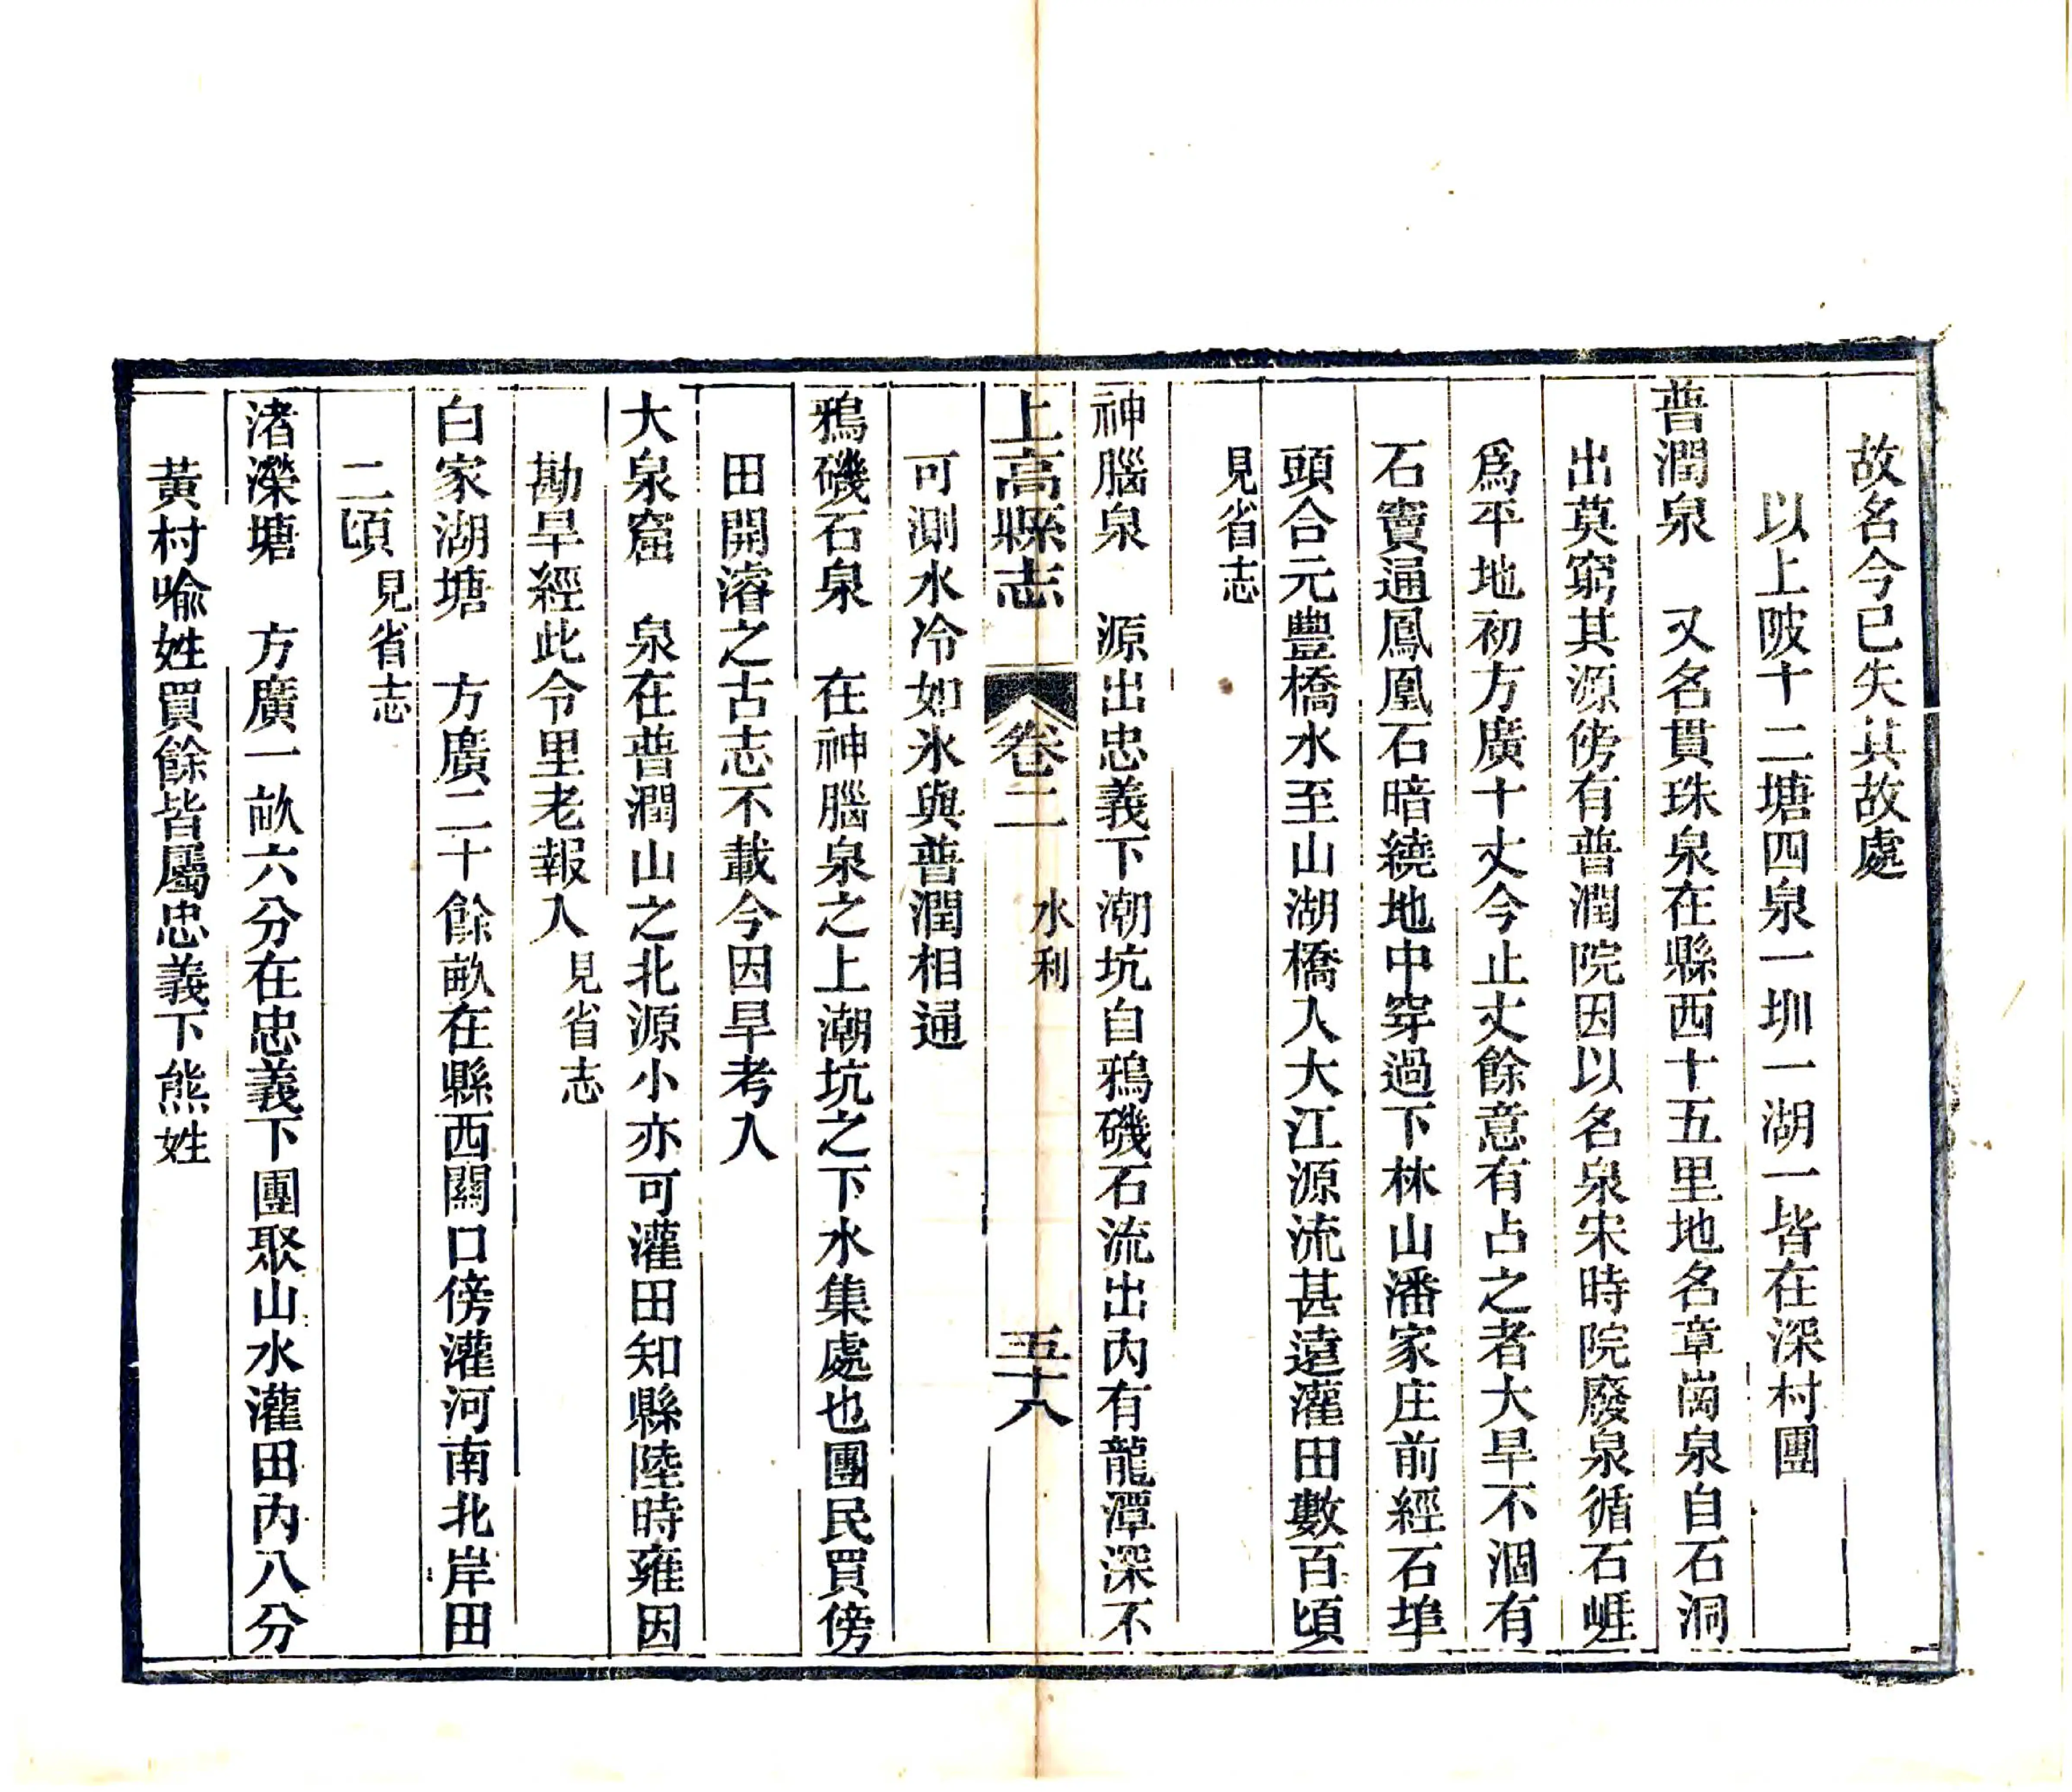 故名今已失其故處
以上陂十二塘四泉一圳一湖一皆在深村團
普潤泉　又名貫珠泉在縣西十五里地名章崗泉自石洞
出莫窮其源傍有普潤院因以名泉宋時院廢泉循石崕
爲平地初方廣十丈今止丈餘意有占之者大旱不涸有
石竇通鳳凰石暗繞地中穿過下林山潘家庄前經石埠
頭合元豐橋水至山湖橋入大江源流甚遠灌田數百頃
見省志
神腦泉　源出忠義下潮坑自鴉磯石流出內有龍潭深不
上高縣志　卷二　水利　五十八
可測水冷如氷與普潤相通
鴉磯石泉　在神腦泉之上潮坑之下水集處也團民買傍
田開濬之古志不載今因旱考入
大泉窟　泉在普潤山之北源小亦可灌田知縣陸時雍因
勘旱經此令里老報入見省志
白家湖塘　方廣二十餘畝在縣西關口傍灌河南北岸田
二頃見省志
渚濼塘　方廣一畝六分在忠義下團聚山水灌田內八分
黃村喩姓買餘皆屬忠義下熊姓